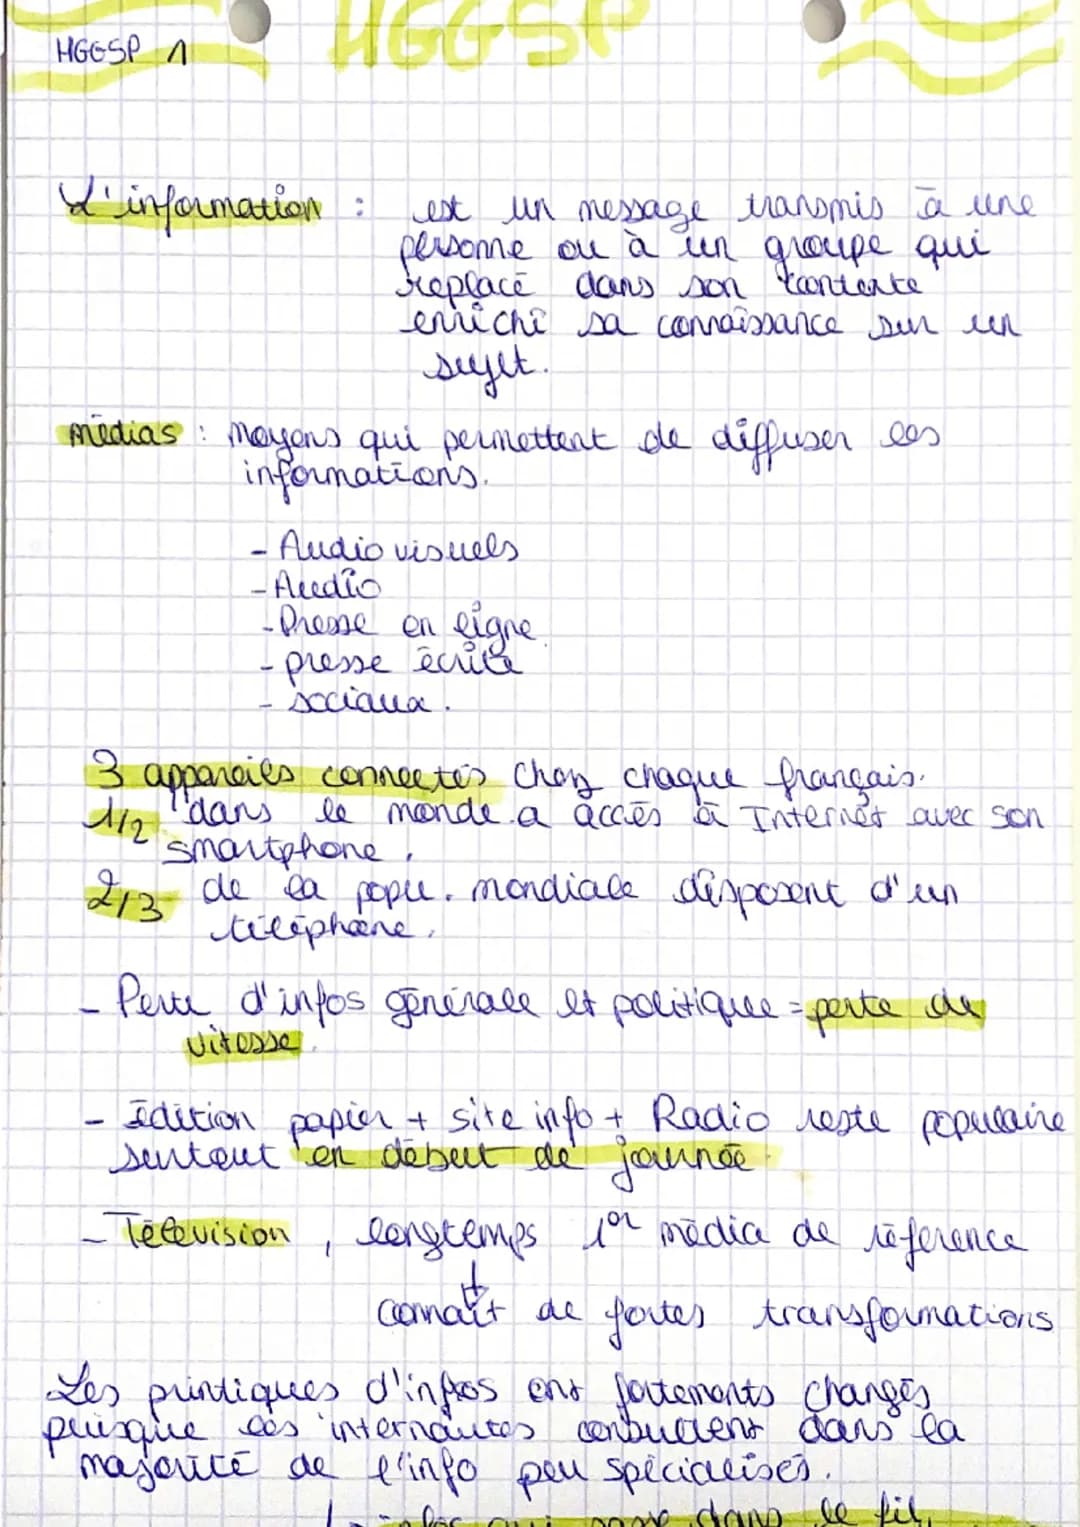 HGGSP
HGGSP 1
L'information : est un message transmis à une
personne ou à un groupe qui
replacé dans son contexte
enrichi sa connaissance sur un
sujet.
médias : moyens qui permettent de diffuser les
informations.
- Audio visuels
- Audio
- Presse en ligne
- presse écrite
- sociaux.
3 appareils connectés chez chaque français.
1/2 dans le monde a accès à Internet avec son
smartphone.
2/3 de la popu. mondiale disposent d'un
téléphone.
- Perte d'infos générale et politique = perte de
vitesse.
- Édition papier + site info + Radio reste populaire
surtout en début de journée.
- Télévision, longtemps 1er média de référence
connaît de fortes transformations
Les d'infos ont fortements changés
puisque les internautes consultent dans la
majorité de l'info peu spécialisés.
infos qui passe dans le fil